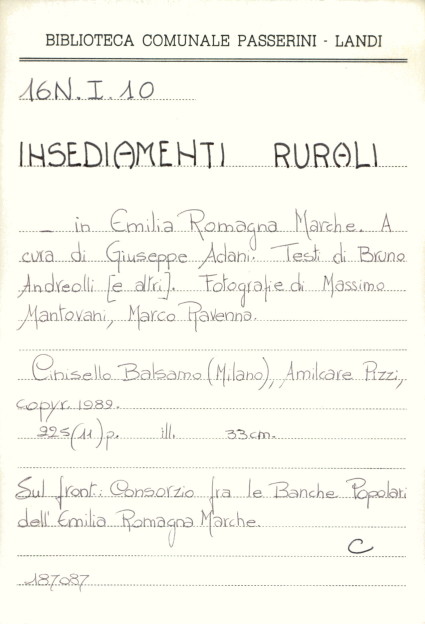 BIBLIOTECA COMUNALE PASSERINI - LANDI
16N. I. 10
INSEDIAMENTI RURALI
_ in Emilia Romagna Marche. A
cura di Giuseppe Adani. Testi di Bruno
Andreolli [e altri]. Fotografie di Massimo
Mantovani, Marco Ravenna.
Cinisello Balsamo (Milano), Amilcare Pizzi,
copyr. 1989.
225 (11) p. ill. 33 cm.
Sul front.: Consorzio fra le Banche Popolari
dell'Emilia Romagna Marche.
C
187087